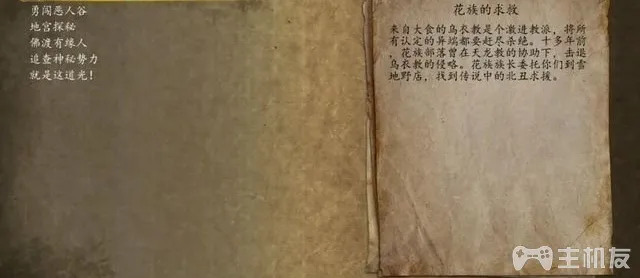 勇闯恶人谷
地宫探秘
佛渡有缘人
追查神秘势力
就是这道光！
花族的求救
来自大食的乌衣教是个激进教派，将所
有认定的异端都要赶尽杀绝。十多年前
，花族部落曾在天龙教的协助下，击退
乌衣教的侵略。花族族长委托你们到雪
地野店，找到传说中的北丑求援。
主机友